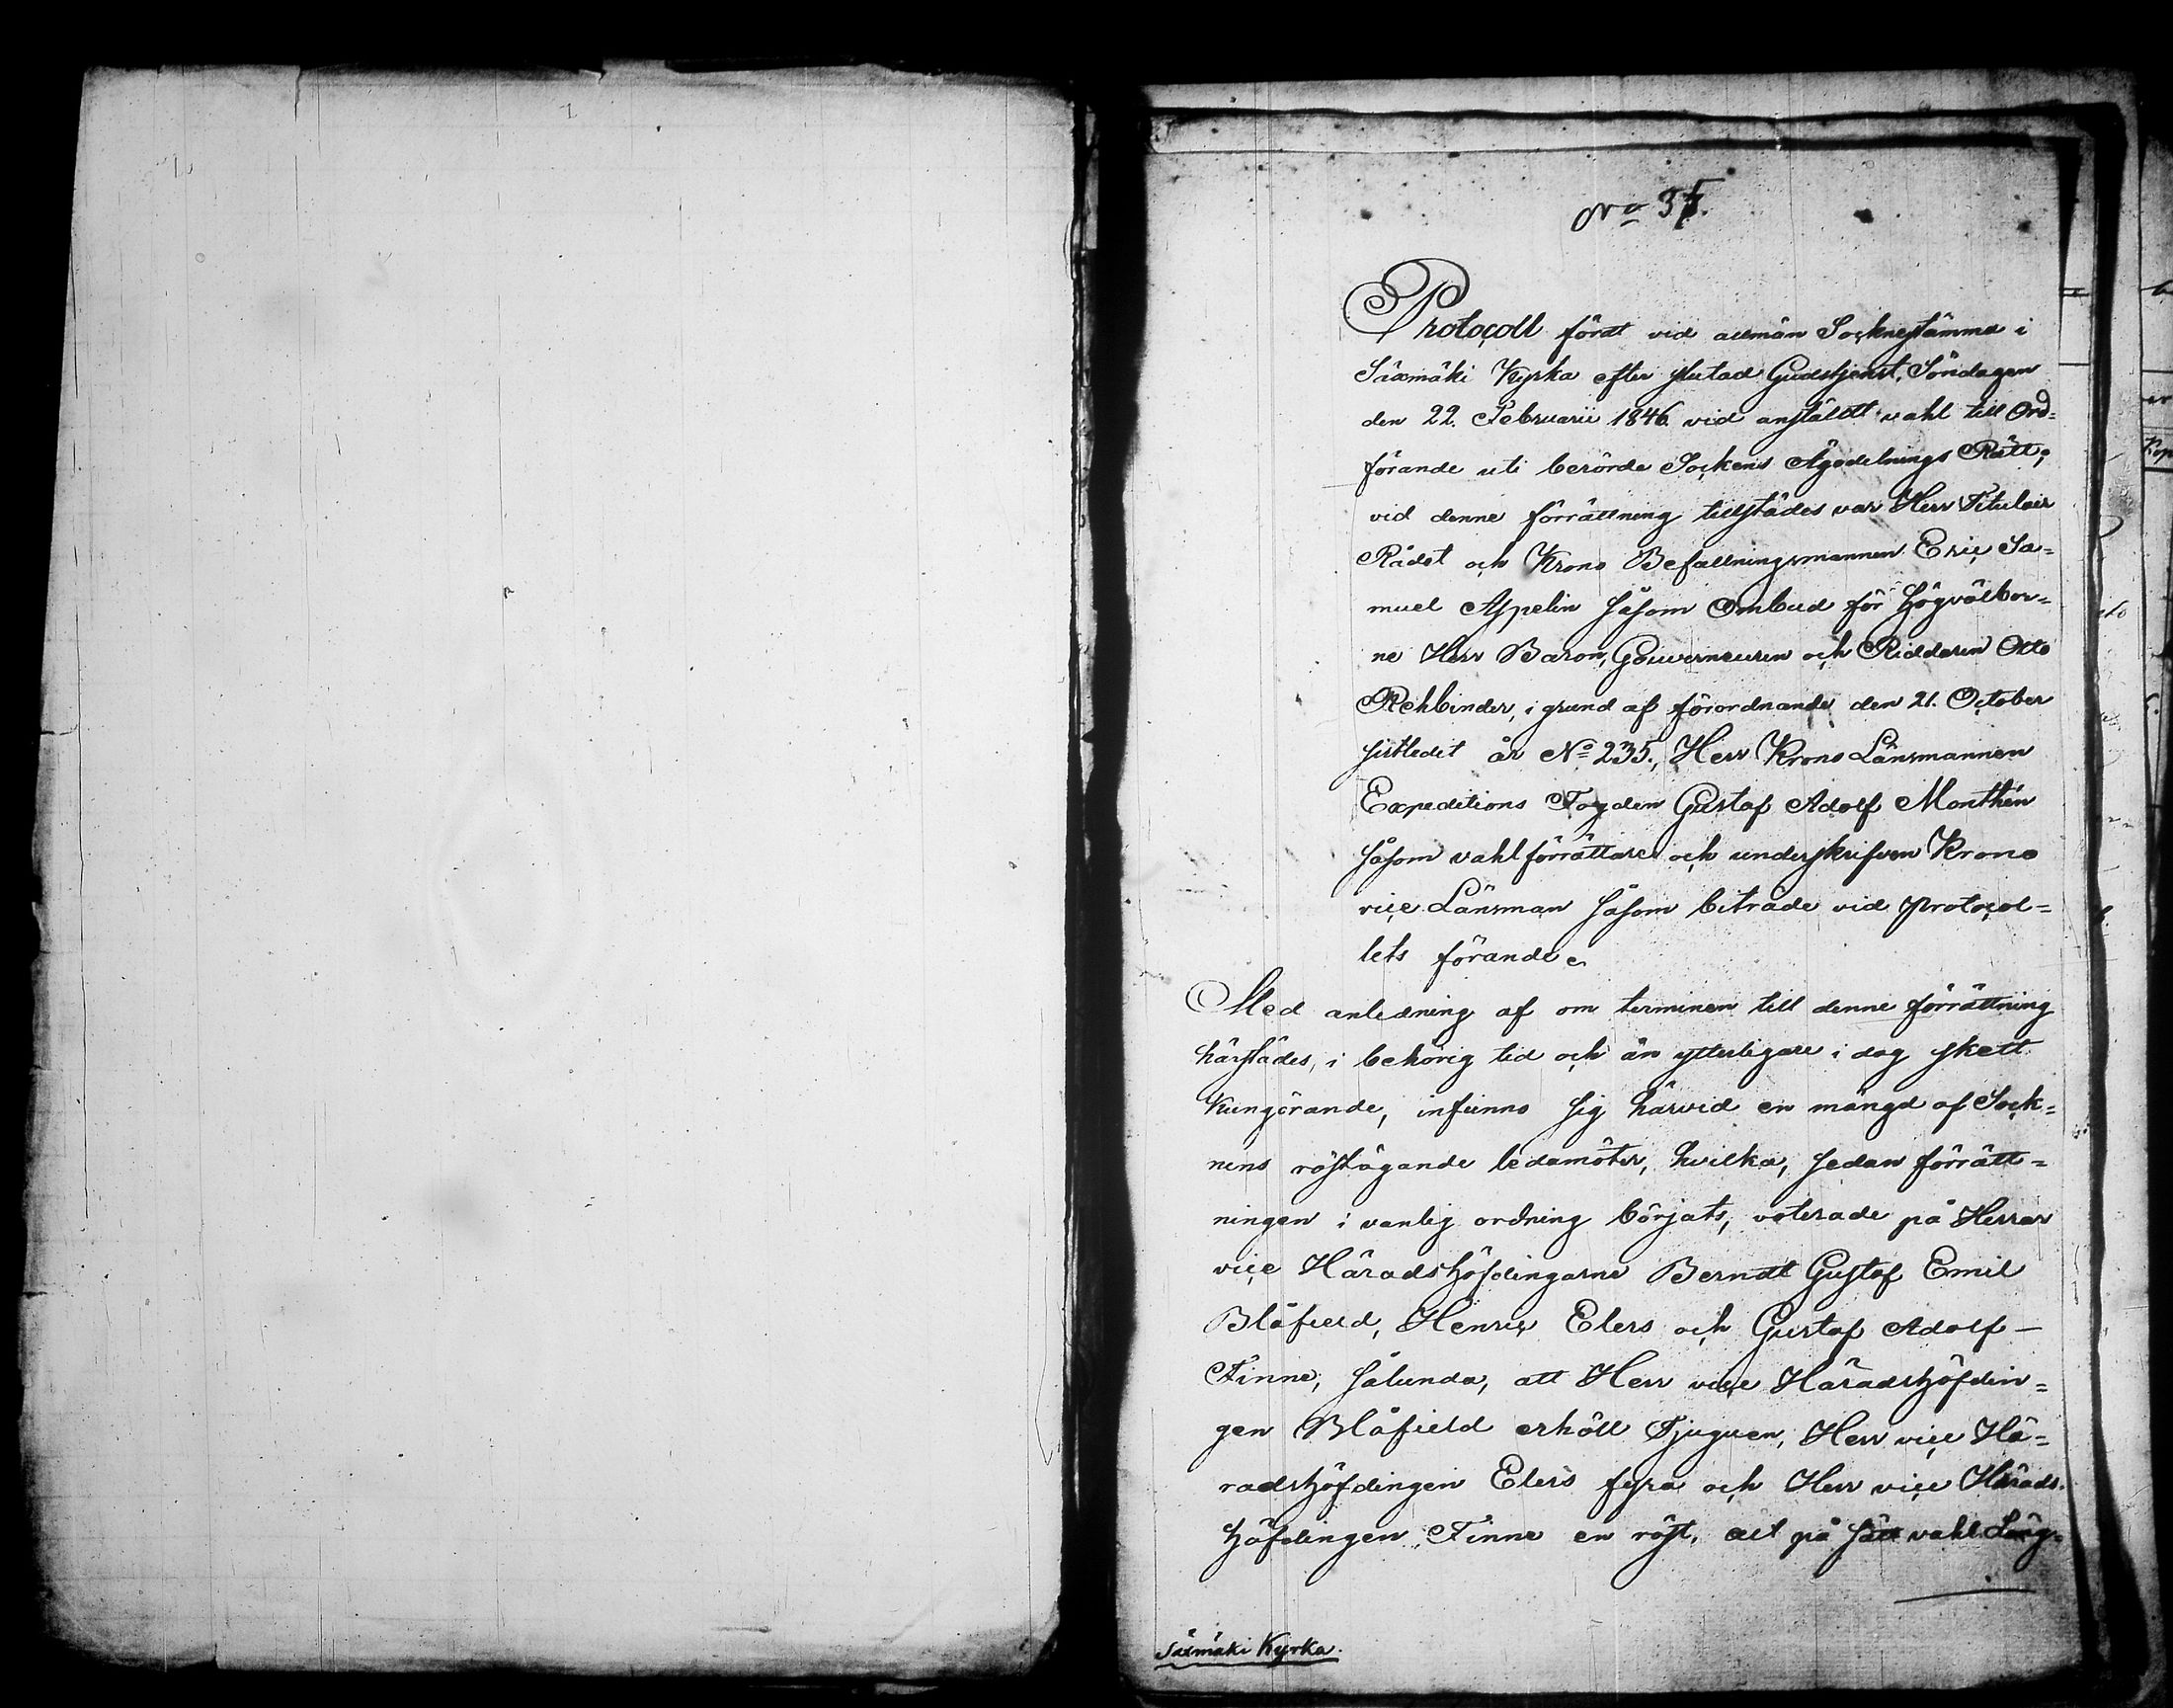 No 35.
Protocoll fördt vid allmän Socknestämma i
Säxmäki Kyrka efter slutad Gudstjenst, Söndagen
den 22. Februarii 1846 vid anstäldt vahl till Ord=
förande uti berörde Sockens Ägodelnings Rätt;
vid denne förrättning tillstädes var Herr Titulair
Rådet och Krono Befallningsmannen Eric Sa=
muel Appelin såsom Ombud för Högvälbor=
ne Herr Baron, Gouverneuren och Riddaren Otto
Rehbinder, i grund af förordnande den 21. October
sistledit år No 235., Herr Krono Länsmannen
Expeditions Fogden Gustaf Adolf Monthén
såsom vahlförrättare och underskrifven Krono
vice Länsman såsom biträde vid protocol=
lets förande.
Med anledning af om terminen till denne förrättning
härstädes, i behörig tid och än ytterligare i dag skett
kungörande, infunno sig härvid en mängd af Sock=
nens röstägande ledamöter, hvilka, sedan förrätt=
ningen i vanlig ordning börjats, voterade på Herrar
vice Häradshöfdingarne Berndt Gustaf Emil
Blåfield, Henric Elers och Gustaf Adolf —
Finne, sålunda, att Herr vice Häradshöfdin=
gen Blåfield erhöll Tjuguen, Herr vice Hä=
radshöfdingen Elers fyra och Herr vice Härads=
höfdingen Finne en röst, allt på sätt vahl Läng=
Säxmäki Kyrka.